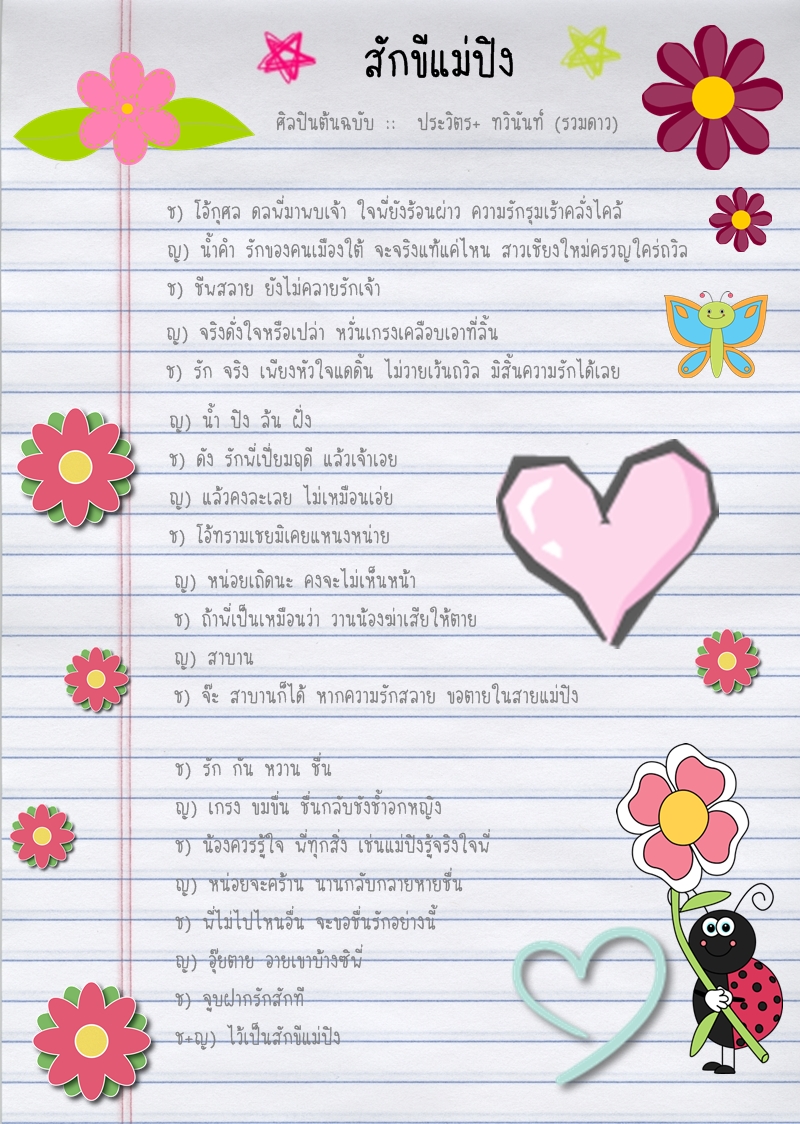 สักขีแม่ปิง
ศิลปินต้นฉบับ :: ประวิตร+ ทวินันท์ (รวมดาว)
ช) โอ้กุศล ดลพี่มาพบเจ้า ใจพี่ยังร้อนผ่าว ความรักรุมเร้าคลั่งไคล้
ญ) น้ำคำ รักของคนเมืองใต้ จะจริงแท้แค่ไหน สาวเชียงใหม่ครวญใคร่ถวิล
ช) ชีพสลาย ยังไม่คลายรักเจ้า
ญ) จริงดั่งใจหรือเปล่า หวั่นเกรงเคลือบเอาที่ลิ้น
ช) รัก จริง เพียงหัวใจแดดิ้น ไม่วายเว้นถวิล มิสิ้นความรักได้เลย
ญ) น้ำ ปิง ล้น ฝั่ง
ช) ดัง รักพี่เปี่ยมฤดี แล้วเจ้าเอย
ญ) แล้วคงละเลย ไม่เหมือนเอ่ย
ช) โอ้ทรามเชยมิเคยแหนงหน่าย
ญ) หน่อยเถิดนะ คงจะไม่เห็นหน้า
ช) ถ้าพี่เป็นเหมือนว่า วานน้องฆ่าเสียให้ตาย
ญ) สาบาน
ช) จ๊ะ สาบานก็ได้ หากความรักสลาย ขอตายในสายแม่ปิง
ช) รัก กัน หวาน ชื่น
ญ) เกรง ขมขื่น ชื่นกลับชังช้ำอกหญิง
ช) น้องควรรู้ใจ พี่ทุกสิ่ง เช่นแม่ปิงรู้จริงใจพี่
ญ) หน่อยจะคร้าน นานกลับกลายหายชื่น
ช) พี่ไม่ไปไหนอื่น จะขอชื่นรักอย่างนี้
ญ) อุ๊ยตาย อายเขาบ้างซิพี่
ช) จูบฝากรักสักที
ช+ญ) ไว้เป็นสักขีแม่ปิง